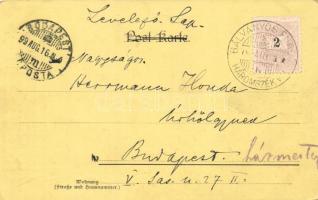 Levelező Lap.
Post-Karte
BUDAPEST
99 AUG. 16
POSTA
BÁLVÁNYOS
HÁROMSZÉK M.
2
Nagyságos
Herrmann Honda
Budapest.
V. Sas u. 27 II.
Wohnung
(Straße und Hausnummer.)